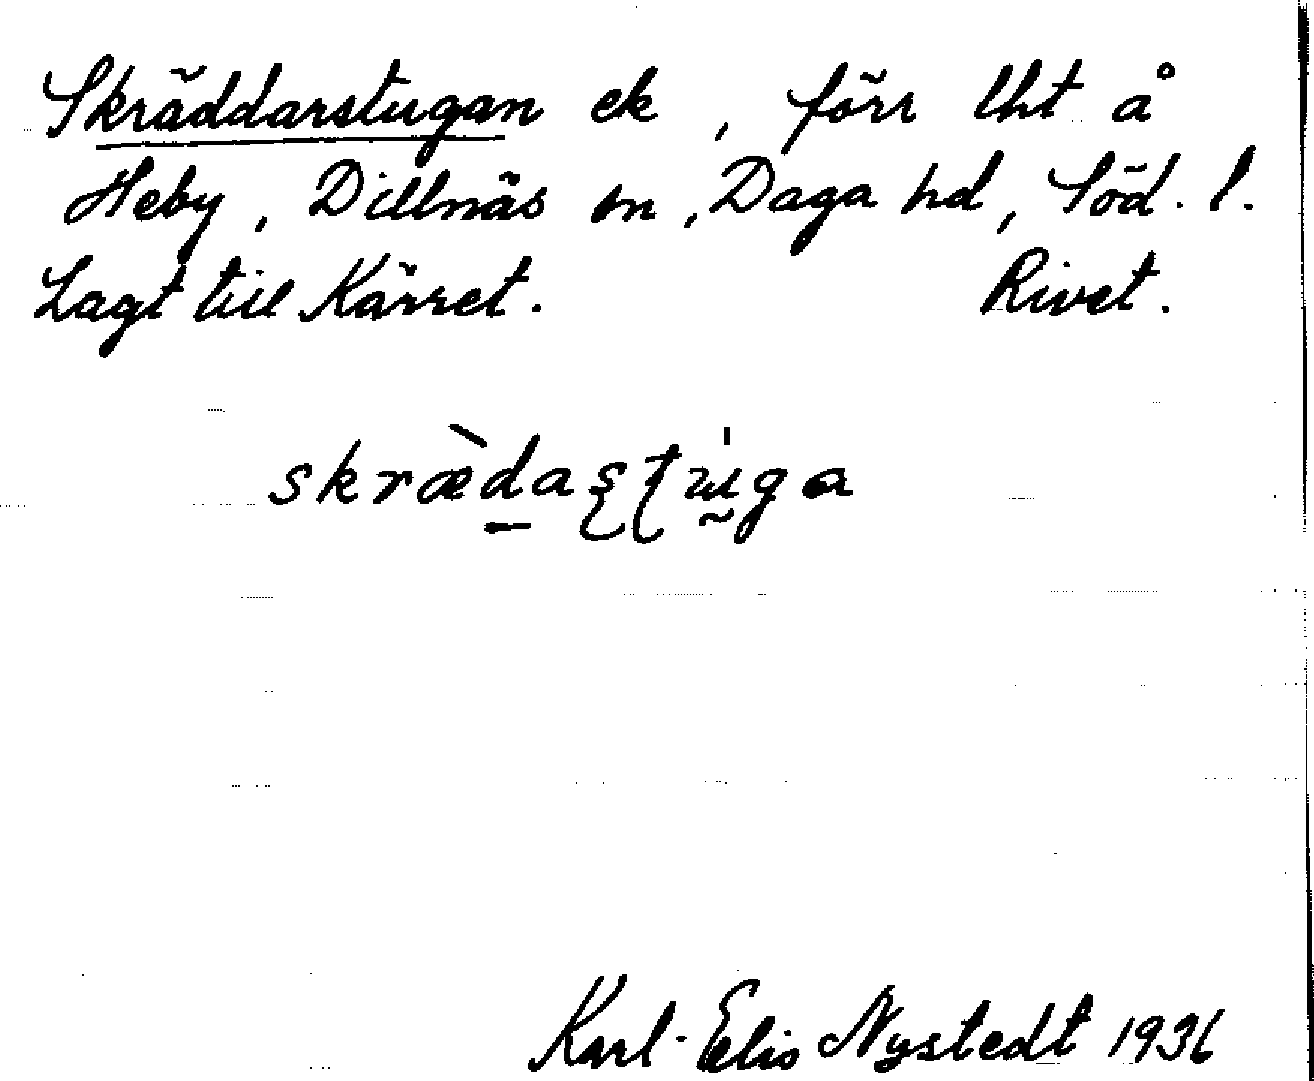 Skräddarstugan ek, förr lht å
Heby, Dillnäs sn, Daga hd, Söd. l.
Lagt till Kärret. Rivet.
skræ̀da ʂʈɯ̰́ga
Karl-Elis Nystedt 1936